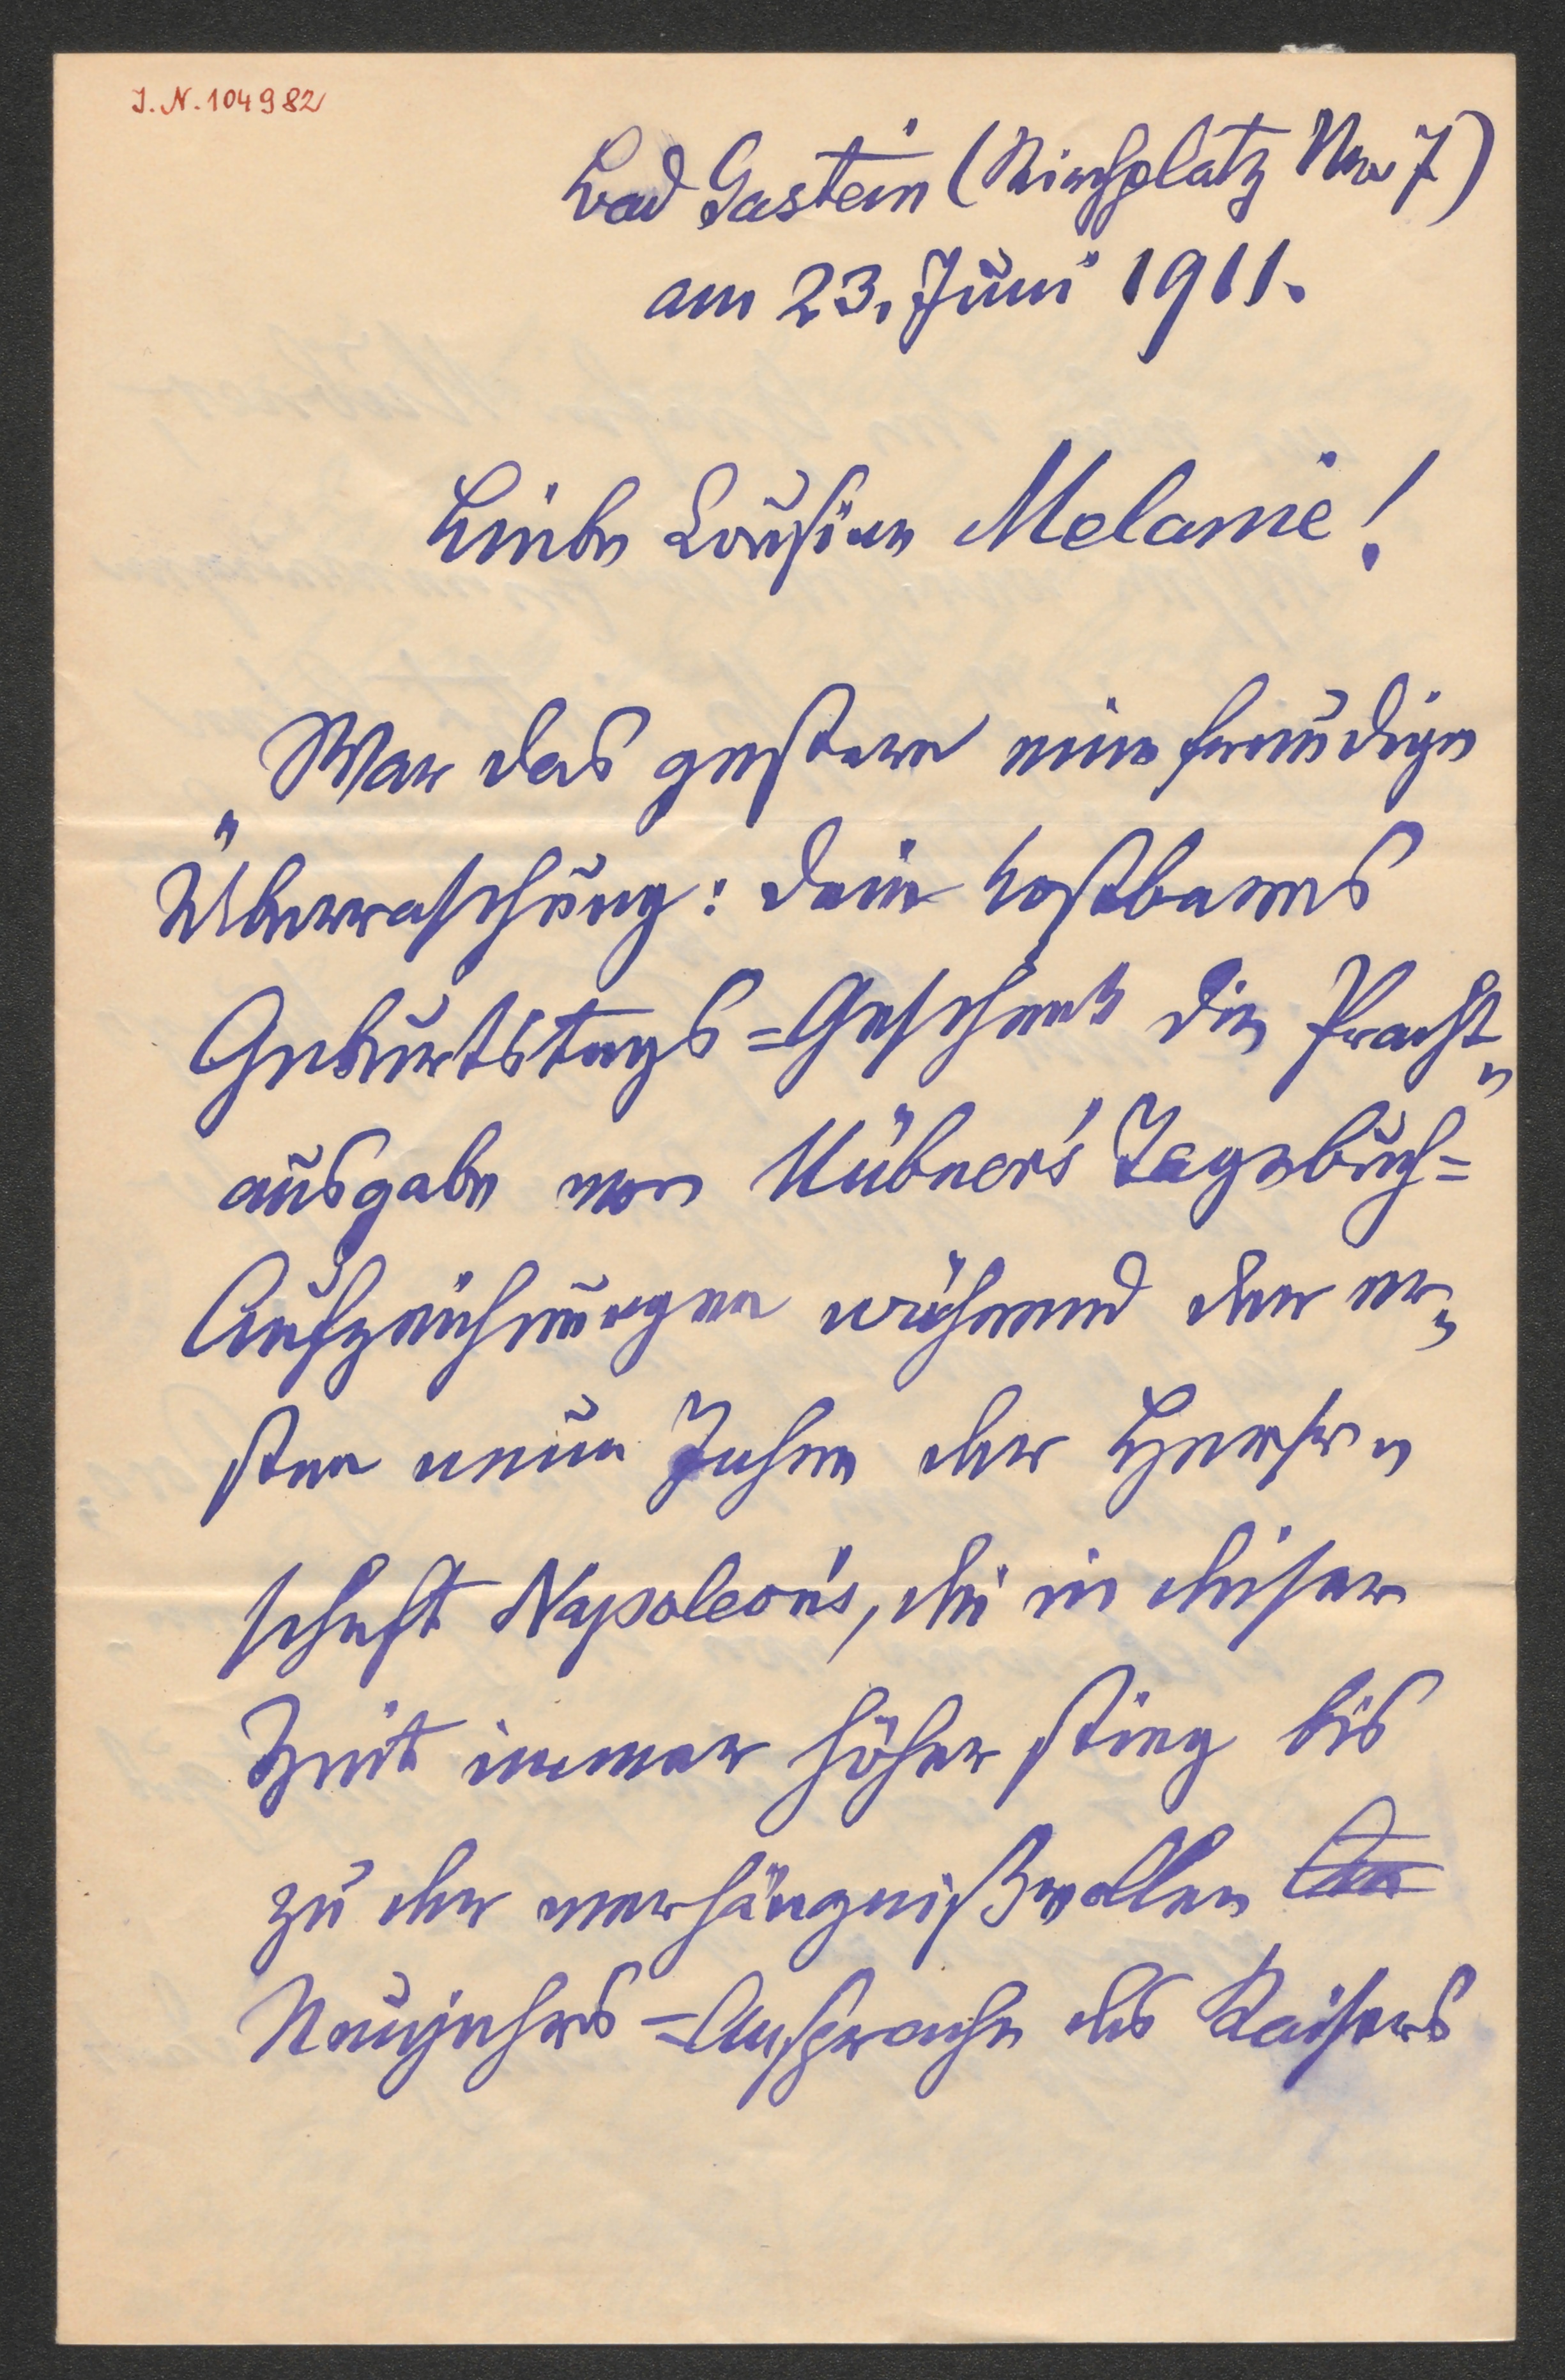 J. N. 104982
Bad Gastein (Kirchplatz No 7)
am 23. Juni 1911.
Liebe Cousine Melanie!
War das gestern eine freudige
Überraschung: Dein kostbares
Geburtstags=Geschenk die Pracht„
ausgabe von Hübner's Tagebuch=
Aufzeichnungen während der er„
sten neun Jahre der Herr„
schaft Napoleon's, die in dieser
Zeit immer höher stieg bis
zu der verhängnißvollen
Neujahrs=Ansprache des Kaisers